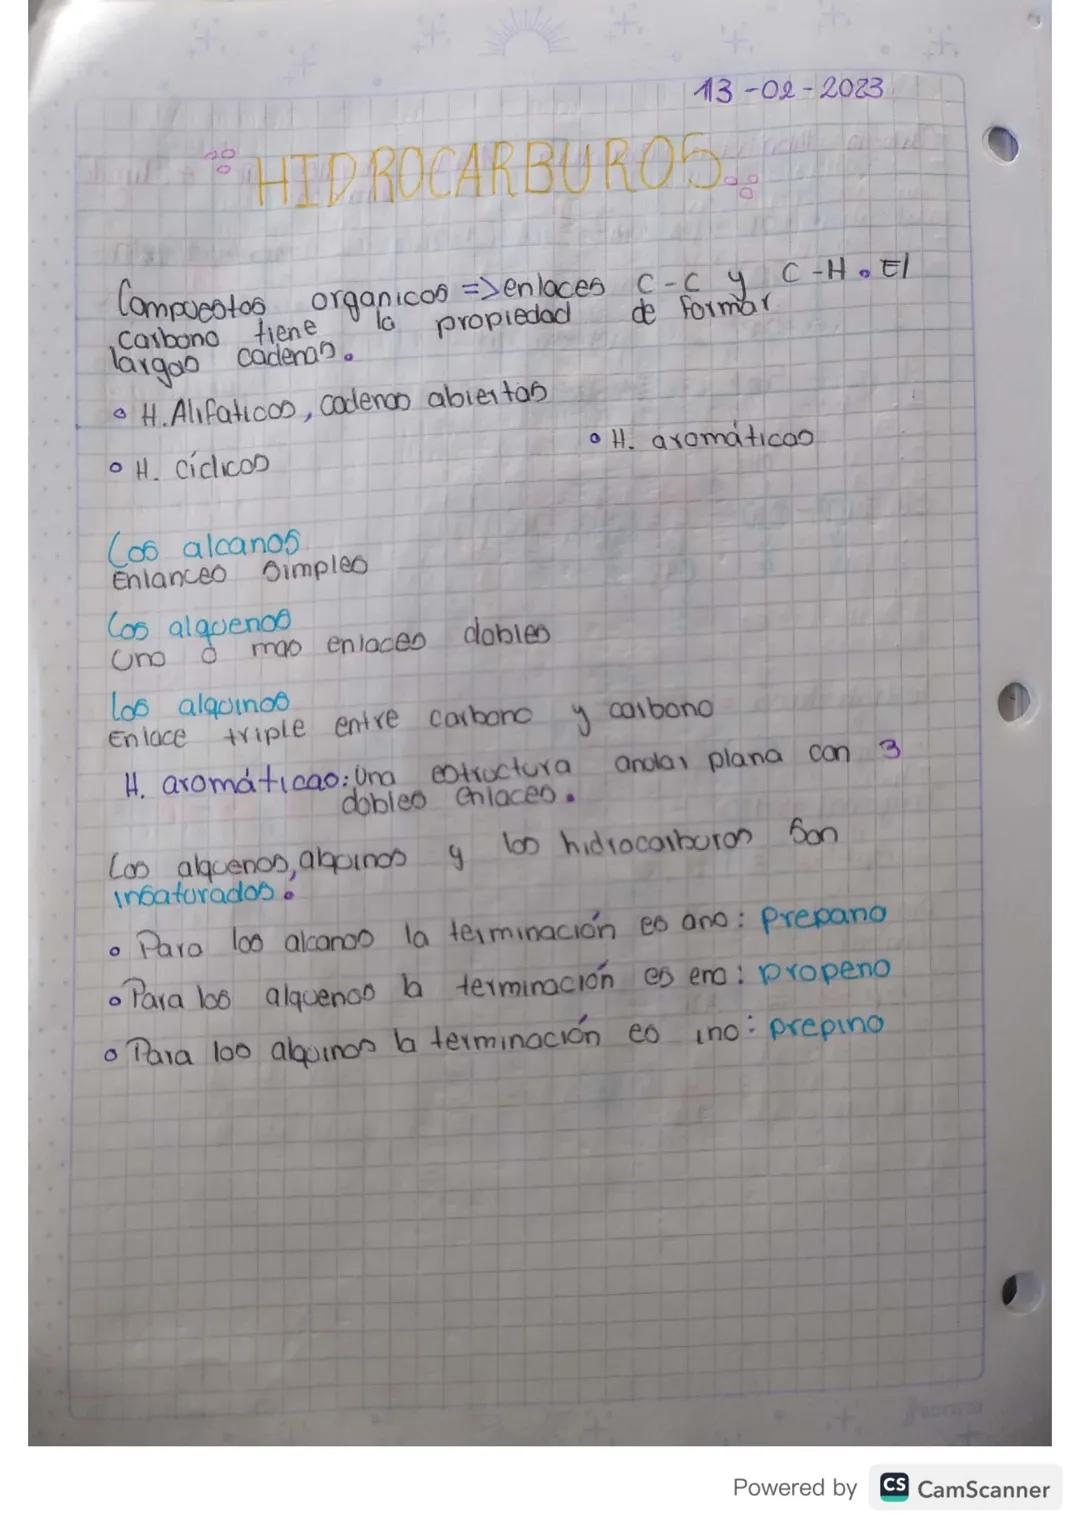 13-02-2023
HIDROCARBUROS
Compuestos organicos => enlaces C-C y C-H. El
carbono tiene la propiedad de formar
largas cadenas.
• H. Alifaticos, cadenas abiertas
• H. aromáticos
• H. cíclicos
Los alcanos
Enlances simples
Los alquenos
Uno o mas enlaces dobles
Los alquinos
Enlace triple entre carbono y carbono
H. aromáticos: Una estructura anular plana con 3
dobles enlaces.
Los alquenos, alquinos y los hidrocarburos son
insaturados.
• Para los alcanos la terminación es ano: prepano
• Para los alquenos la terminación es eno: propeno
• Para los alquinos la terminación es ino: prepino
Powered by CS CamScanner